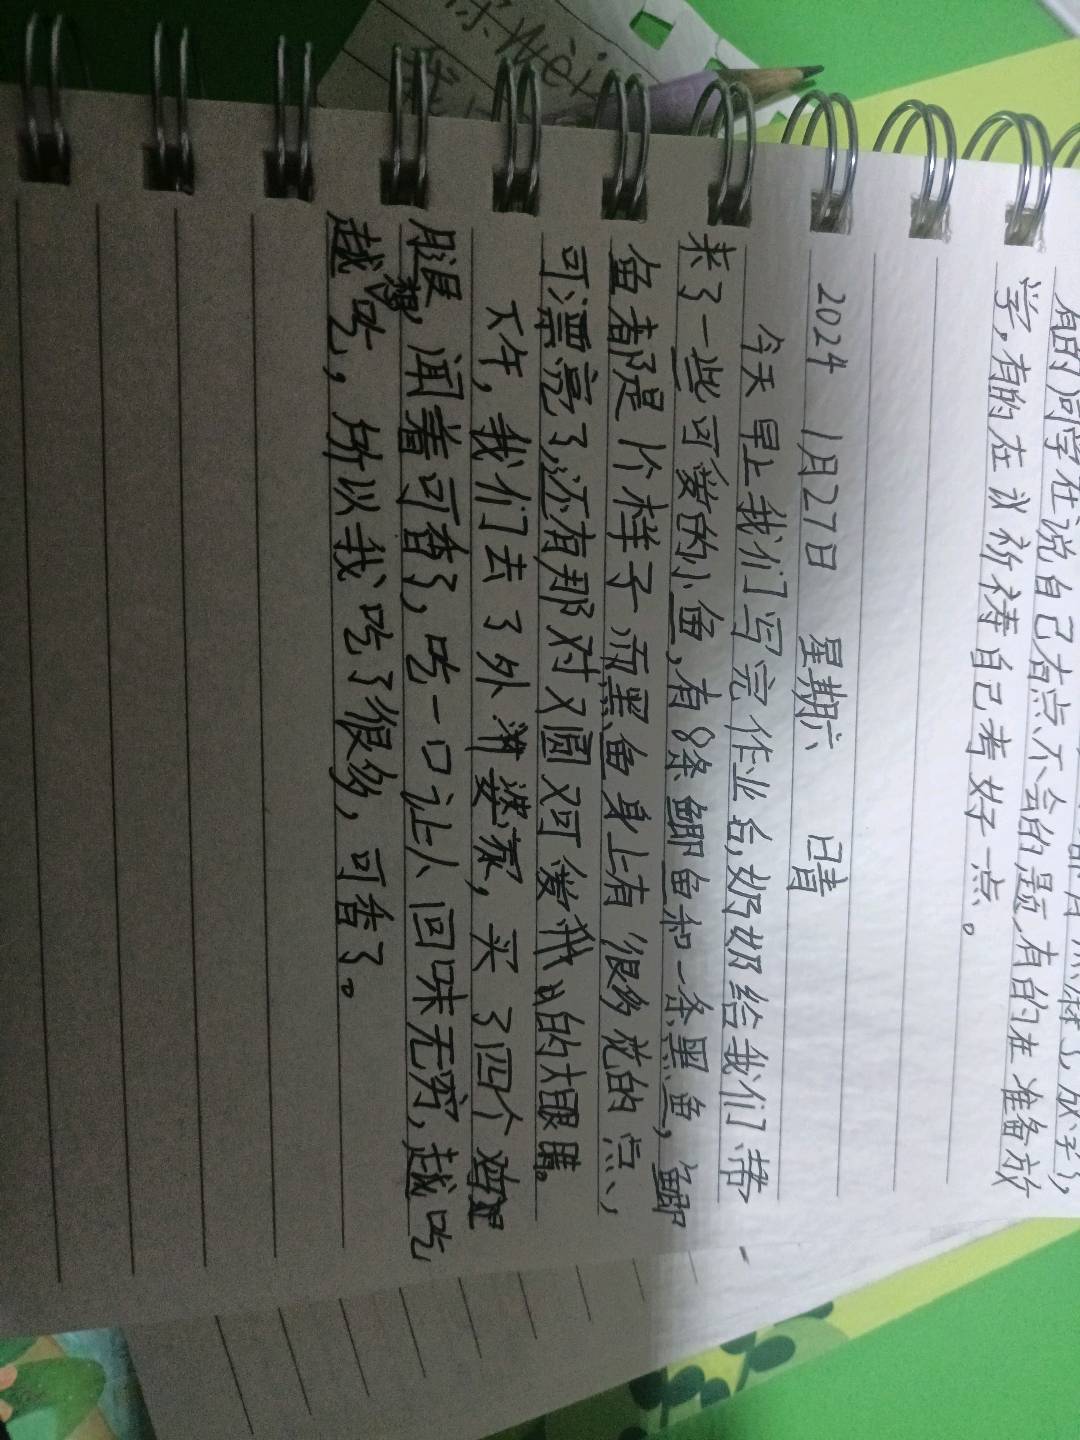 有的同学在说自己有点不会的题,有的在准备放
学,有的在议祈祷自己考好一点。
2024 1月27日 星期六 晴
今天早上我们写完作业后,奶奶给我们带
来了一些可爱的小鱼,有8条鲫鱼和一条黑鱼,鲫
鱼都是1个样子,而黑鱼身上有很多花的点、
可漂亮了,还有那对又圆又可爱的大眼睛。
下午,我们去了外婆家,买了四个鸡
腿,闻着可香了,吃一口让人回味无穷,越吃
越想吃,所以我吃了很多,可香了。